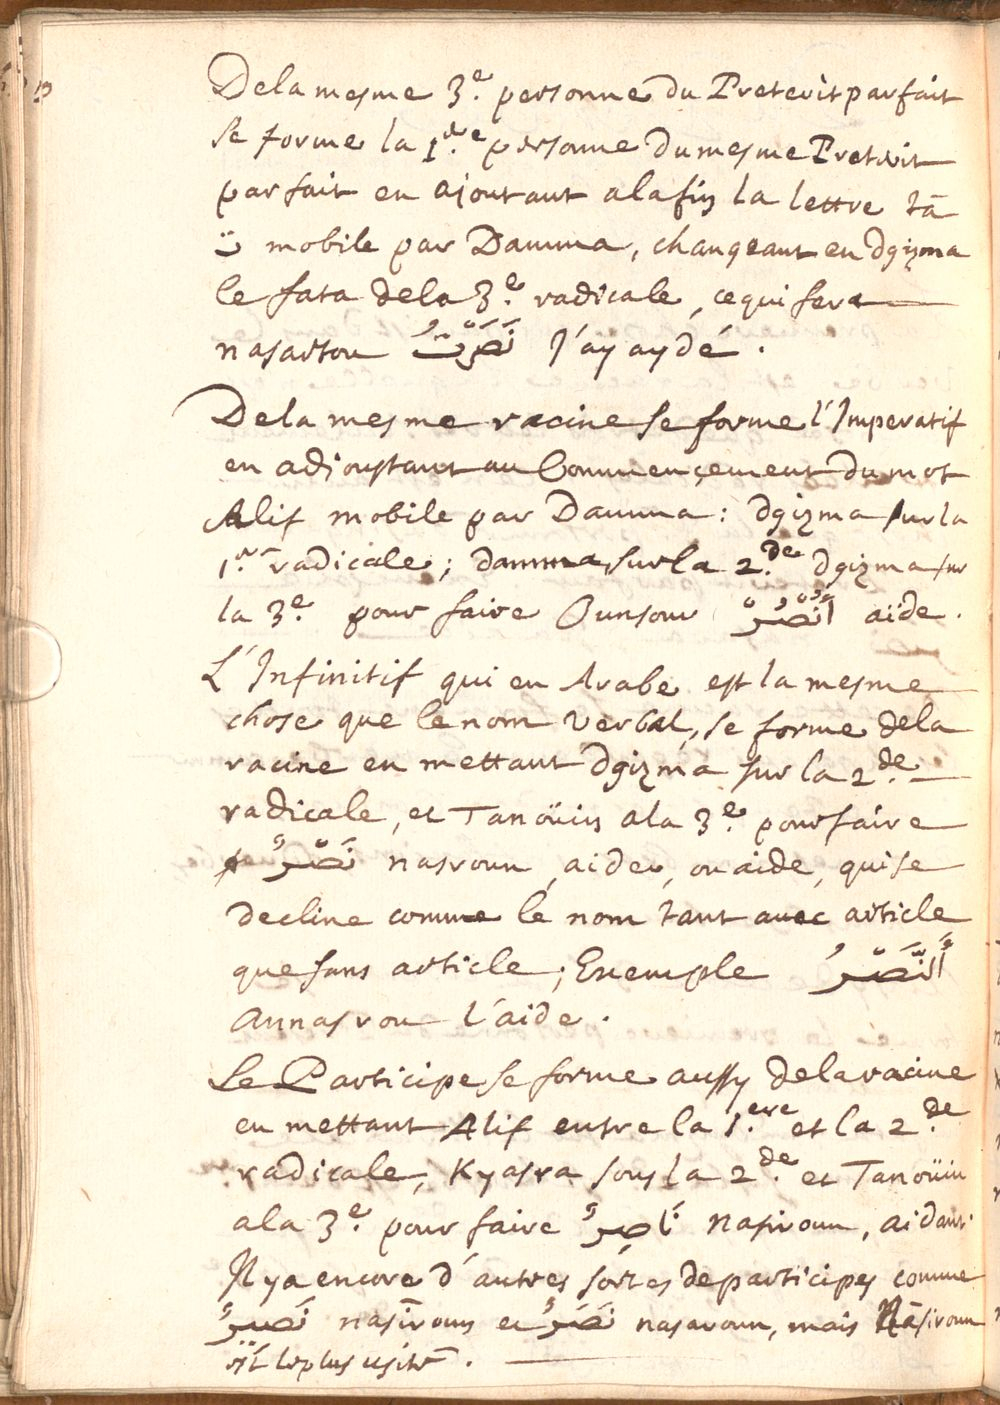 De la mesme 3.e personne du Preterit parfait
se forme la 1.ere personne du mesme Preterit
parfait en ajoutant a la fin la lettre tā
ت mobile par Damma, changeant en dgizma
le fata de la 3.e radicale, ce qui fera
nasartou نَصَرْتُ J'ay aydé.
De la mesme racine se forme l'Imperatif
en adjoustant au Commencement du mot
Alif mobile par Damma: dgizma sur la
1.e radicale; damma sur la 2.de dgizma sur
la 3.e pour faire Ounsour اُنْصُرْ aide.
L'Infinitif qui en Arabe est la mesme
chose que le nom verbal, se forme de la
racine en mettant dgizma sur la 2.de
radicale, et Tanoüin a la 3.e pour faire
نَصْرٌ nasroun, aider, ou aide, qui se
decline comme le nom tant avec article
que sans article; Exemple اَلنَّصْرُ
Annasrou l'aide.
Le Participe se forme aussy de la racine
en mettant Alif entre la 1.ere et la 2.de
radicale, Kyasra sous la 2.de et Tanoüin
a la 3.e pour faire نَاصِرٌ nasiroun, aidant
Il y a encore d'autres sortes de participes comme
نَصِيرٌ nasīroun et نَصَرٌ nasaroun, mais Nāsiroun
est le plus usité.